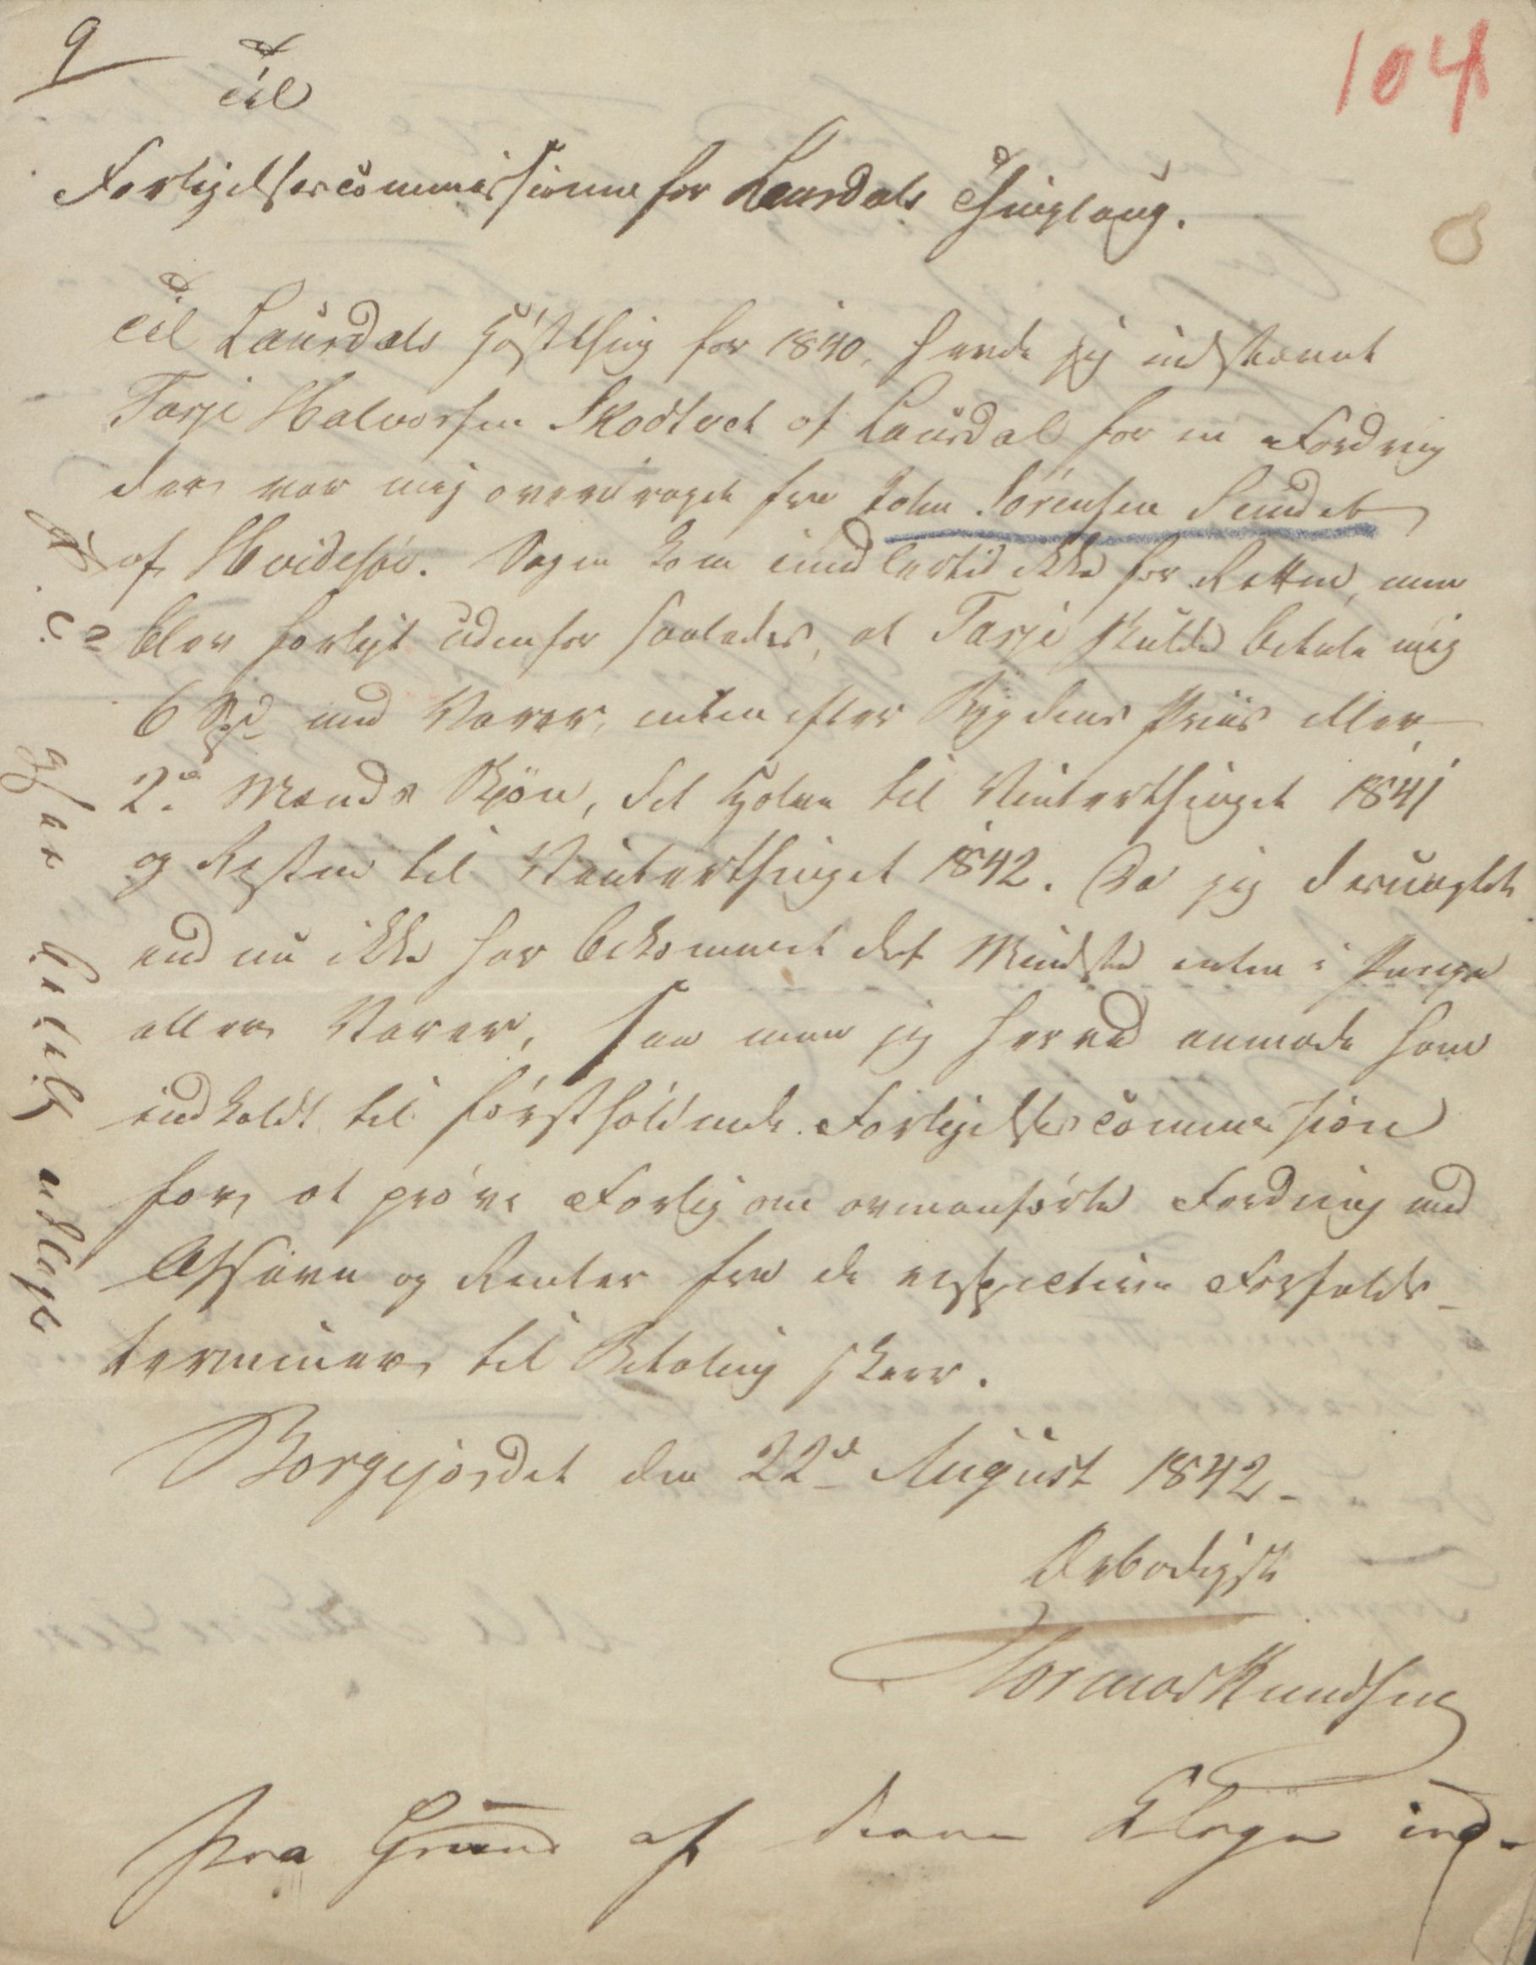 9
104
Til
Forligelsescommissionen for Laurdals Thinglaug.
Til Laurdals Høstthing for 1840, havde jeg indstævnt
Tarje Halvorsen Skodtvet af Laurdal for en Fordring
der var mig overdragen fra John Sørensen Sundet
af Hvidesøe. Sagen kom imidlertid ikke for Retten, men
blev forligt udenfor saaledes, at Tarje skulde betale mig
6 Spd med Varer, enten efter Bygdens Priis eller
2de Mænds Skjøn, det halve til Vinterthinget 1841
og Resten til Vinterthinget 1842. Da jeg deruagtet
endnu ikke har bekommet det Mindste enten i Penge
eller Varer, saa maa jeg herved anmode ham
indkaldt til førstholdende Forligelsescommission
for, at prøve Forlig om ovenanførte Fordring med
Afsavn og Renter fra de respective Forfalds-
terminer til Betaling skeer.
Borgejordet den 22d August 1842-
Ærbødigst
Tormod Knudsen
Paa Grund af denne Klage ind-
har betalt